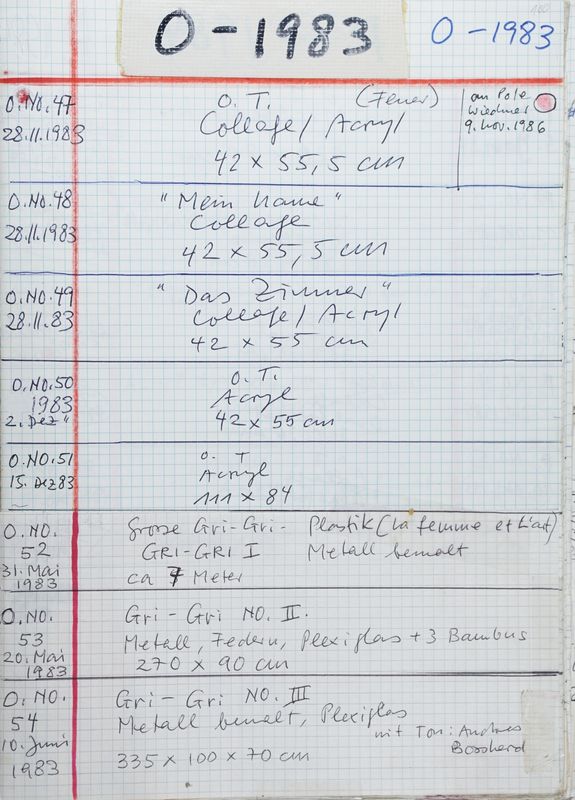 O-1983 O-1983
O.No.47 O.T. (Feuer) an Pole
28.11.1983 Collage/Acryl Wiedmer
42 x 55,5 cm 9. Nov. 1986
O.No.48 "Mein Name"
28.11.1983 Collage
42 x 55,5 cm
O.No.49 "Das Zimmer"
28.11.83 Collage/Acryl
42 x 55 cm
O.No.50 O.T.
1983 Acryl
2. Dez " 42 x 55 cm
O.NO.51 O. T
15. Dez 83 Acryl
111 x 84
O.NO. Grosse Gri-Gri- Plastik (La femme et L'art)
52 GRI-GRI I Metall bemalt
31. Mai ca 7 Meter
1983
O.NO. Gri-Gri NO. II.
53 Metall, Federn, Plexiglas + 3 Bambus
20. Mai 270 x 90 cm
1983
O.NO. Gri-Gri NO. III
54 Metall bemalt, Plexiglas
10. Juni mit Ton: Andres
1983 335 x 100 x 70 cm Bosshard